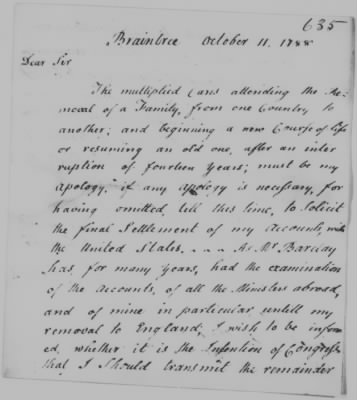 635
Braintree October 11. 1788
Dear Sir
The multiplied Cares attending the Re-
moval of a Family, from one Country to
another; and beginning a new Course of life
or resuming an old one, after an inter
ruption of fourteen Years; must be my
apology, if any apology is necessary, for
having omitted, till this time, to solicit
the final Settlement of my Accounts, with
the United States. _ _ _ As Mr Barclay
has, for many Years, had the examination
of the Accounts, of all the Ministers abroad,
and of mine in particular, untill my
removal to England; I wish to be inform
ed, whether it is the Intention of Congress
that I should transmit the remainder